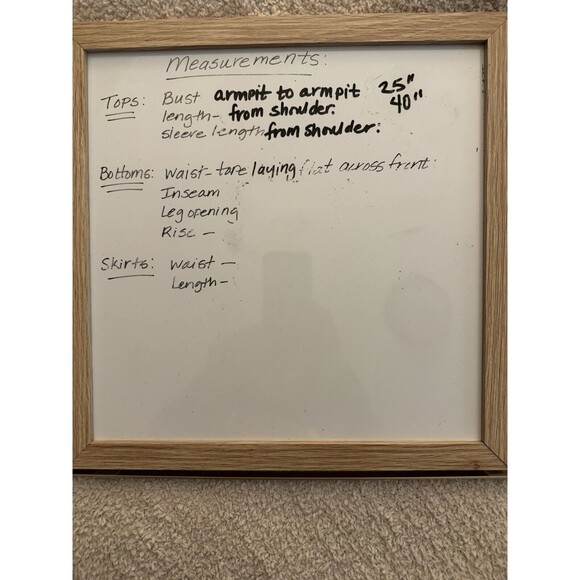 Measurements:
Tops: Bust armpit to armpit 25"
length- from shoulder. 40"
sleeve length from shoulder:
Bottoms: waist- tape laying flat across front:
Inseam
Leg opening
Rise -
Skirts: waist -
Length-